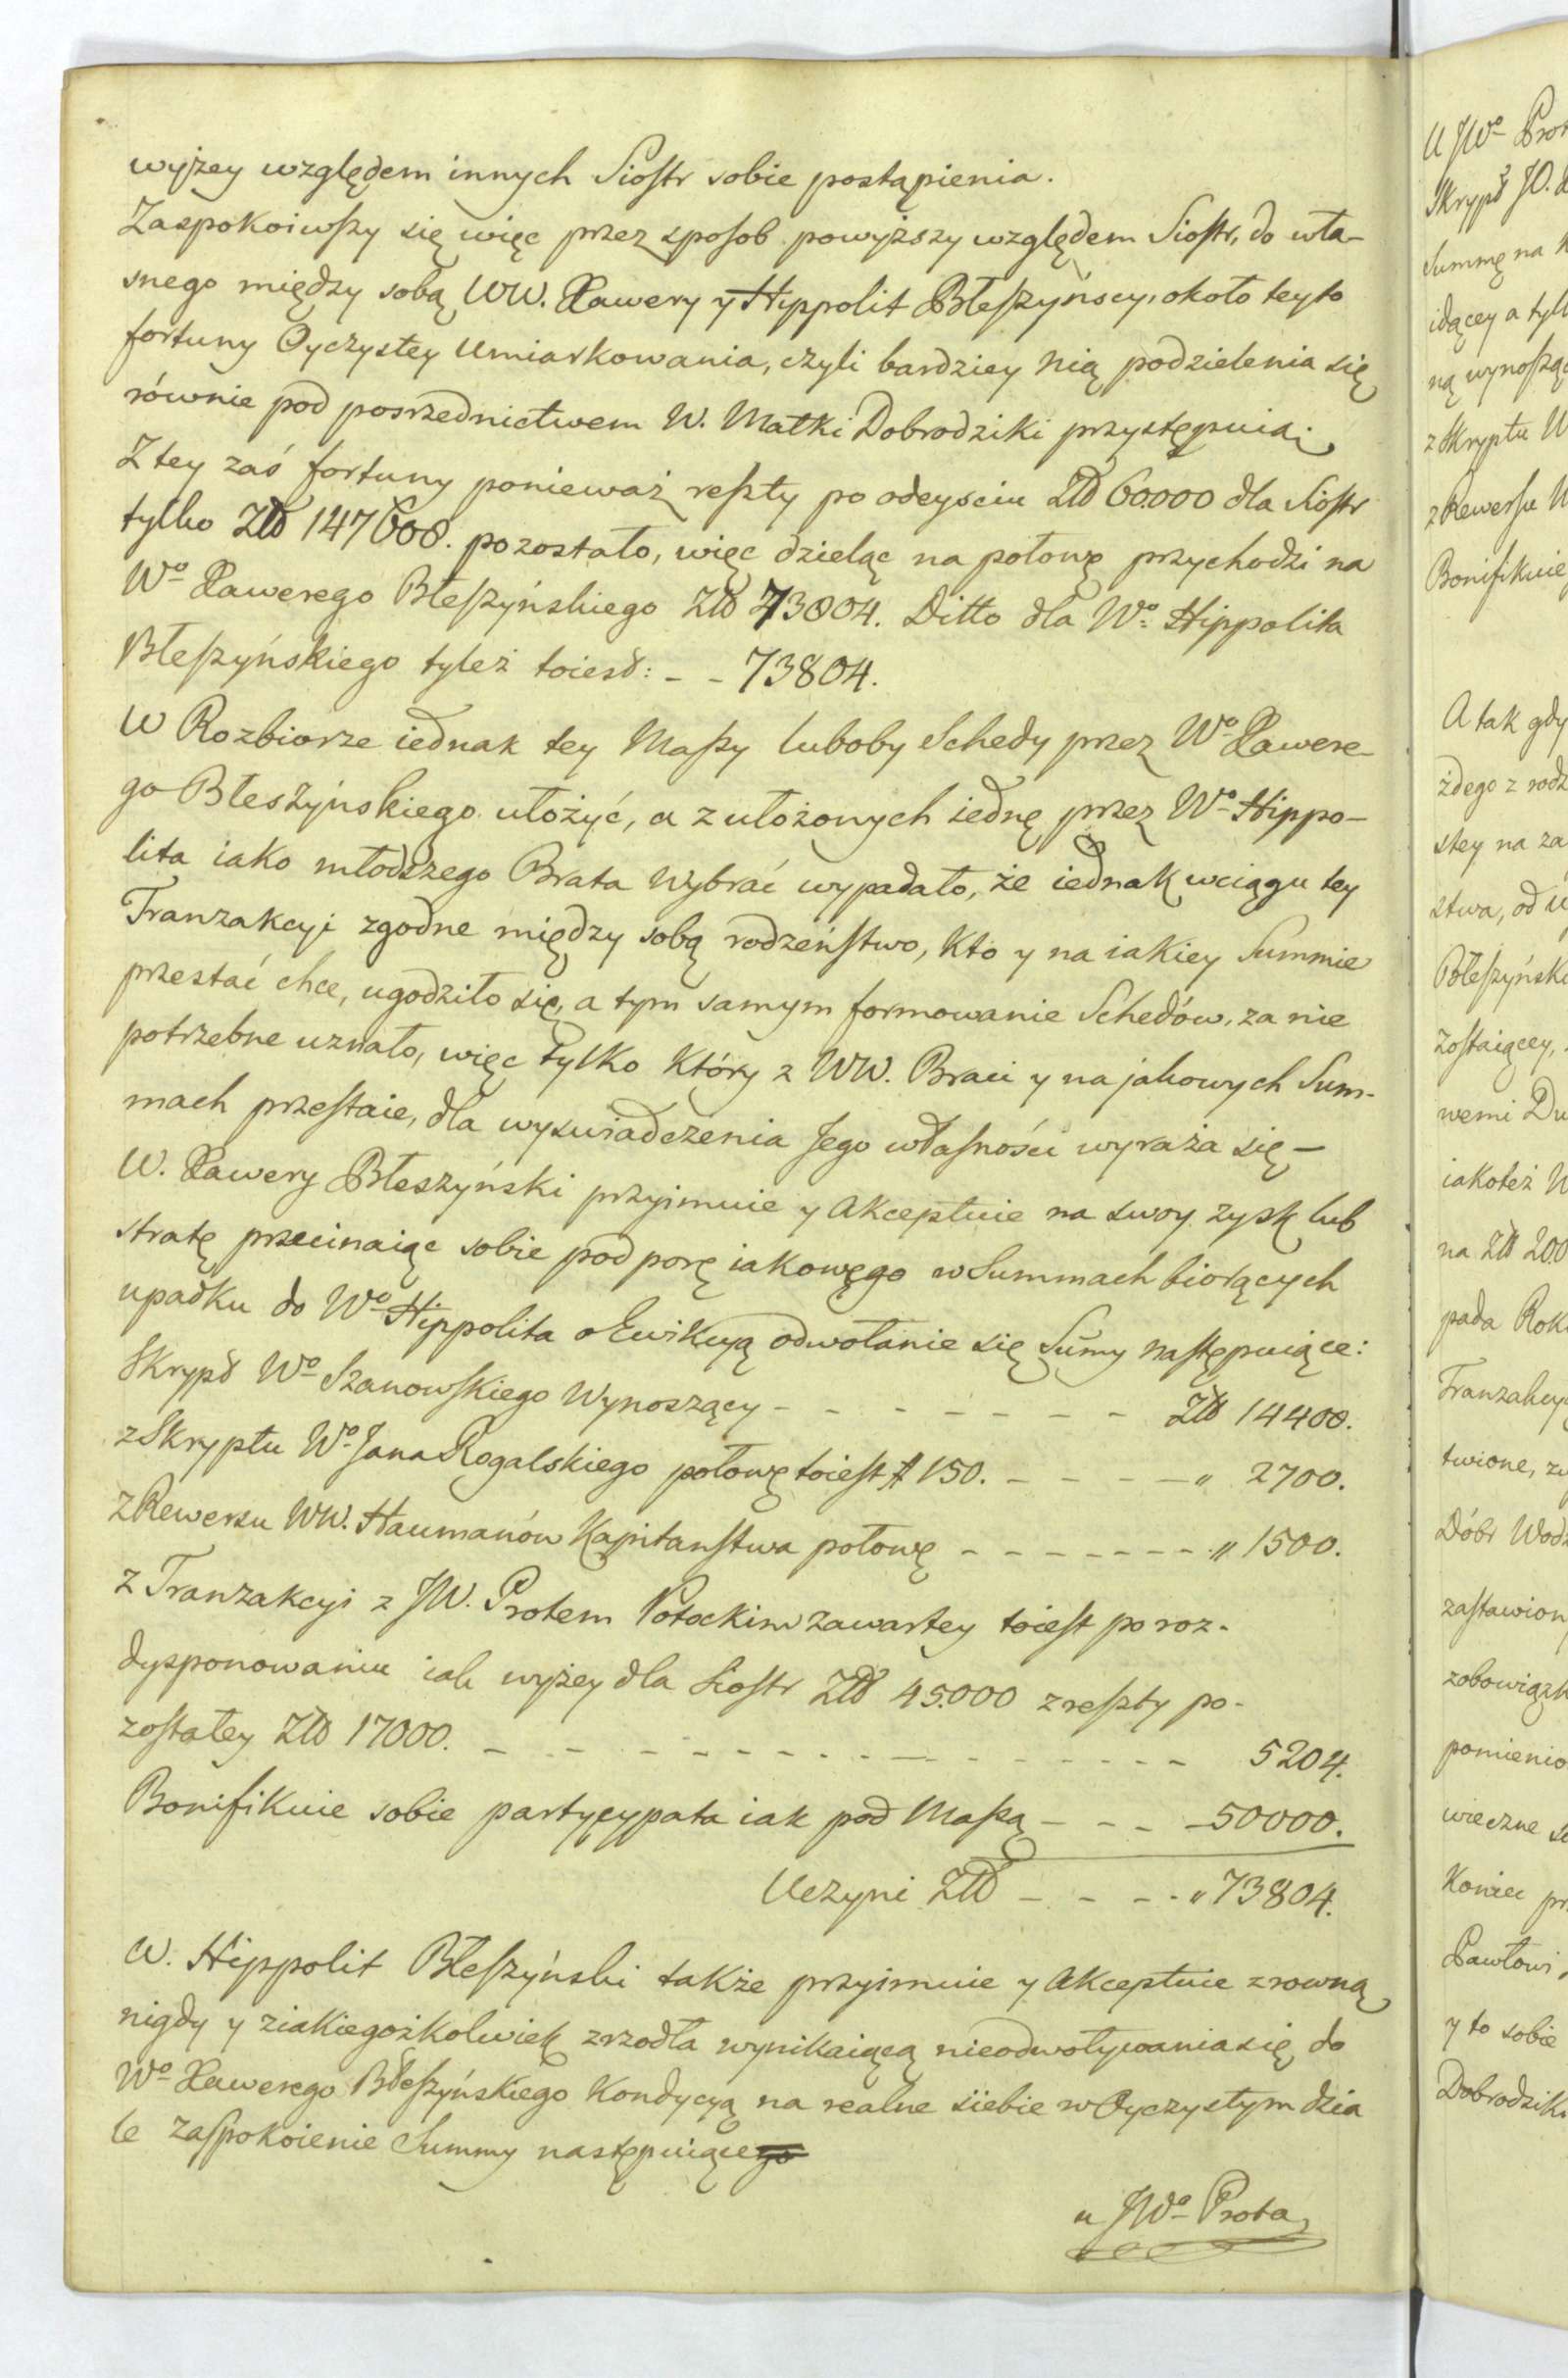 wyżey względem innych Siostr sobie postąpienia.
Zaspokoiwszy się więc przez sposob powyższy względem Siostr, do wła-
snego między sobą WW. Xawery y Hippolit Błeszyńscy, około tey to
fortuny Oyczystey Umiarkowania, czyli bardziey nią podzielenia się
równie pod posrzednictwem W. Matki Dobrodziki przystępuią;
Z tey zaś fortuny ponieważ reszty po odeyściu Złł 60.000 dla Siostr
tylko Złł 147608. pozostało, więc dzieląc na połowę przychodzi na
Wo Xawerego Błeszyńskiego Złł 73804. Ditto dla Wo Hippolita
Błeszyńskiego tyleż toiest: - - 73804.
W Rozbiorze iednak tey Massy luboby Schedy przez Wo Xawere-
go Błeszyńskiego ułożyć, a z ułożonych iednę przez Wo Hippo-
lita iako młodszego Brata wybrać wypadało, że iednak wciągu tey
Tranzakcyi zgodne między sobą rodzeństwo, Kto y na iakiey Summie
przestać chce, ugodziło się, a tym samym formowanie Schedów, za nie
potrzebne uznało, więc tylko Który z WW. Braci y na jakowych Sum-
mach przestaie, dla wyświadczenia Jego własności wyraża się -
W. Xawery Błeszyński przyimuie y Akceptuie na swoy zysk lub
stratę przecinaiąc sobie pod porę iakowego w Summach biorących
upadku do Wo Hippolita o Ewikcyą odwołanie się Sum̄y następuiące:
Skrypt Wo Szanowskiego Wynoszący - - - - - - - - Złł 14400.
z Skryptu Wo Jana Rogalskiego połowę toiest # 150. - - - - - " 2700.
z Rewersu WW. Haumanów Kapitaństwa połowę - - - - - - - " 1500.
z Tranzakcyi z JW. Protem Potockim zawartey toiest po roz-
dysponowaniu iak wyżey dla Siostr Złł 45.000 z reszty po-
zostałey Złł 17000. - - - - - - - - - - - - - - - - 5204.
Bonifikuie sobie partycypata iak pod Massą - - - - 50000.
Uczyni Złł - - - - " 73804.
W. Hippolit Błeszyński także przyimuie y Akceptuie z rowną
nigdy y ziakiegożkolwiek zrzodła wynikaiącą nieodwoływania się do
Wo Xawerego Błeszyńskiego Kondycyą na realne siebie w Oyczystym dzia
le Zaspokoienie Summy następuiące
u JWo Prota
U JWo
Skrypt JO.
Summę na
idącey a tyl
ną wynoszą
z Skryptu W
z Rewersu
Bonifikuie
A tak gdy
żdego z rodz
stey na za
stwa, od
Błeszyńsk
Zostaiącey,
wemi Du
iakoteż W
na Złł 200
pada Rok
Tranzakcy
twione,
Dóbr Wod
zastawion
zobowiązk
pomienio
wieczne
Koniec pr
Pawłowi,
y to sobie
Dobrodzik